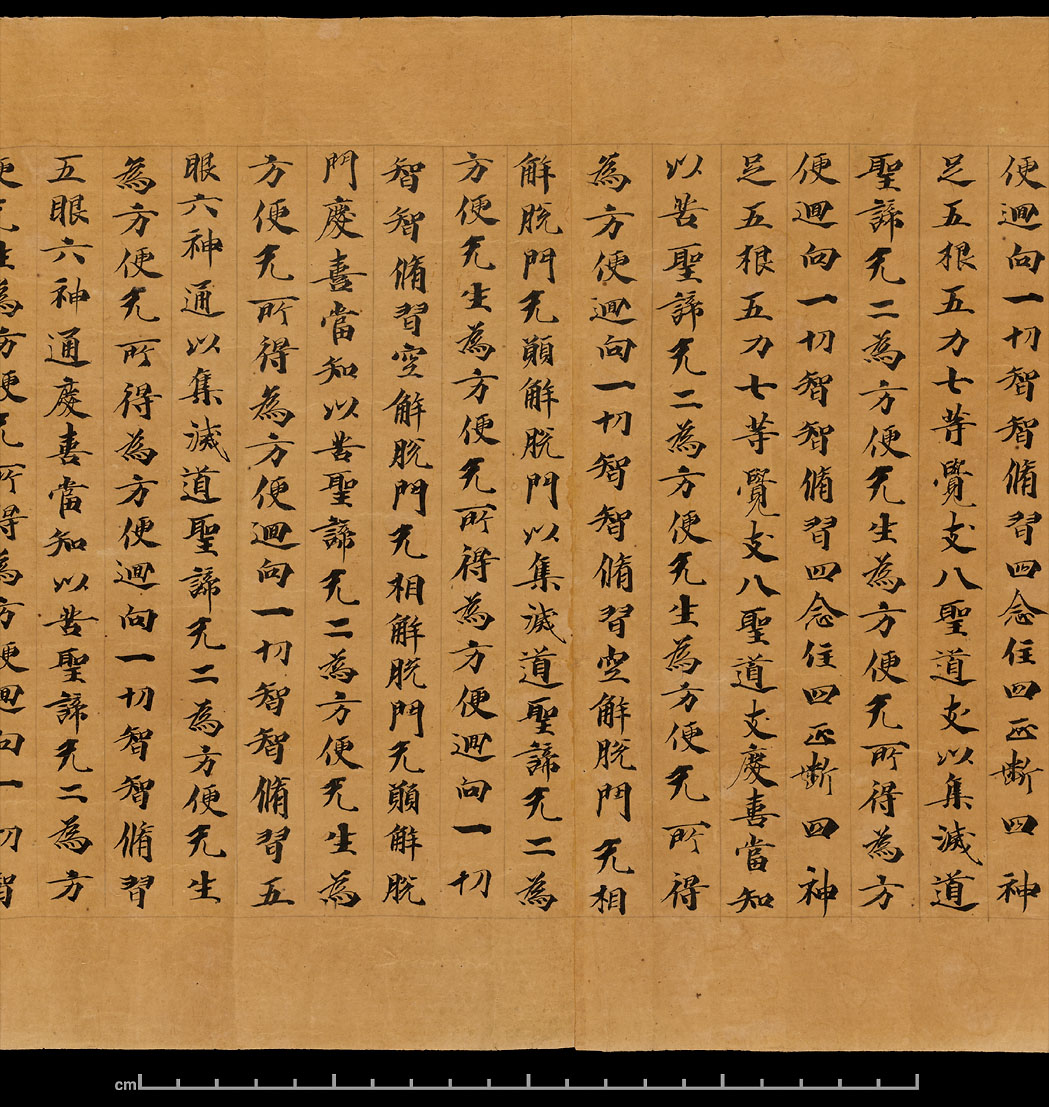 便迴向一切智智脩習四念住四正断四神
足五根五力七等覺支八聖道支以集滅道
聖諦无二為方便无生為方便无所得為方
便迴向一切智智脩習四念住四正断四神
足五根五力七等覺支八聖道支慶喜當知
以苦聖諦无二為方便无生為方便无所得
為方便迴向一切智智脩習空解脫門无相
解脫門无願解脫門以集滅道聖諦无二為
方便无生為方便无所得為方便迴向一切
智智脩習空解脫門无相解脫門无願解脫
門慶喜當知以苦聖諦无二為方便无生為
方便无所得為方便迴向一切智智脩習五
眼六神通以集滅道聖諦无二為方便无生
為方便无所得為方便迴向一切智智脩習
五眼六神通慶喜當知以苦聖諦无二為方
便无生為方便无所得為方便迴向一切智
cm